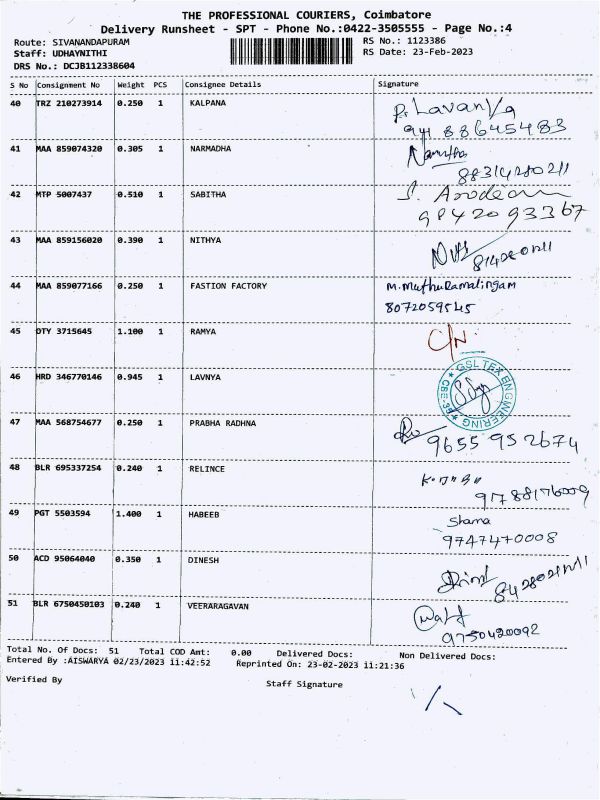 THE PROFESSIONAL COURIERS, Coimbatore
Delivery Runsheet - SPT - Phone No.:0422-3505555 - Page No.:4
Route: SIVANANDAPURAM RS No.: 1123386
Staff: UDHAYNITHI RS Date: 23-Feb-2023
DRS No.: DCJB112338604
S No Consignment No Weight PCS Consignee Details Signature
40 TRZ 210273914 0.250 1 KALPANA P. Lavanya
88645483
41 MAA 859074320 0.305 1 NARMADHA
42 MTP 5007437 0.510 1 SABITHA
9842093367
43 MAA 859156020 0.390 1 NITHYA
44 MAA 859077166 0.250 1 FASTION FACTORY M. Muthuramalingam
8072059545
45 DTY 3715645 1.100 1 RAMYA C/N.
46 HRD 346770146 0.945 1 LAVNYA GSL TEX ENGINEERING
47 MAA 568754677 0.250 1 PRABHA RADHNA
9655952674
48 BLR 695337254 0.240 1 RELINCE
49 PGT 5503594 1.400 1 HABEEB Shama
9747470008
50 ACD 95064040 0.350 1 DINESH
51 BLR 6750450103 0.240 1 VEERARAGAVAN
Total No. Of Docs: 51 Total COD Amt: 0.00 Delivered Docs: Non Delivered Docs:
Entered By :AISWARYA 02/23/2023 11:42:52 Reprinted On: 23-02-2023 11:21:36
Verified By Staff Signature